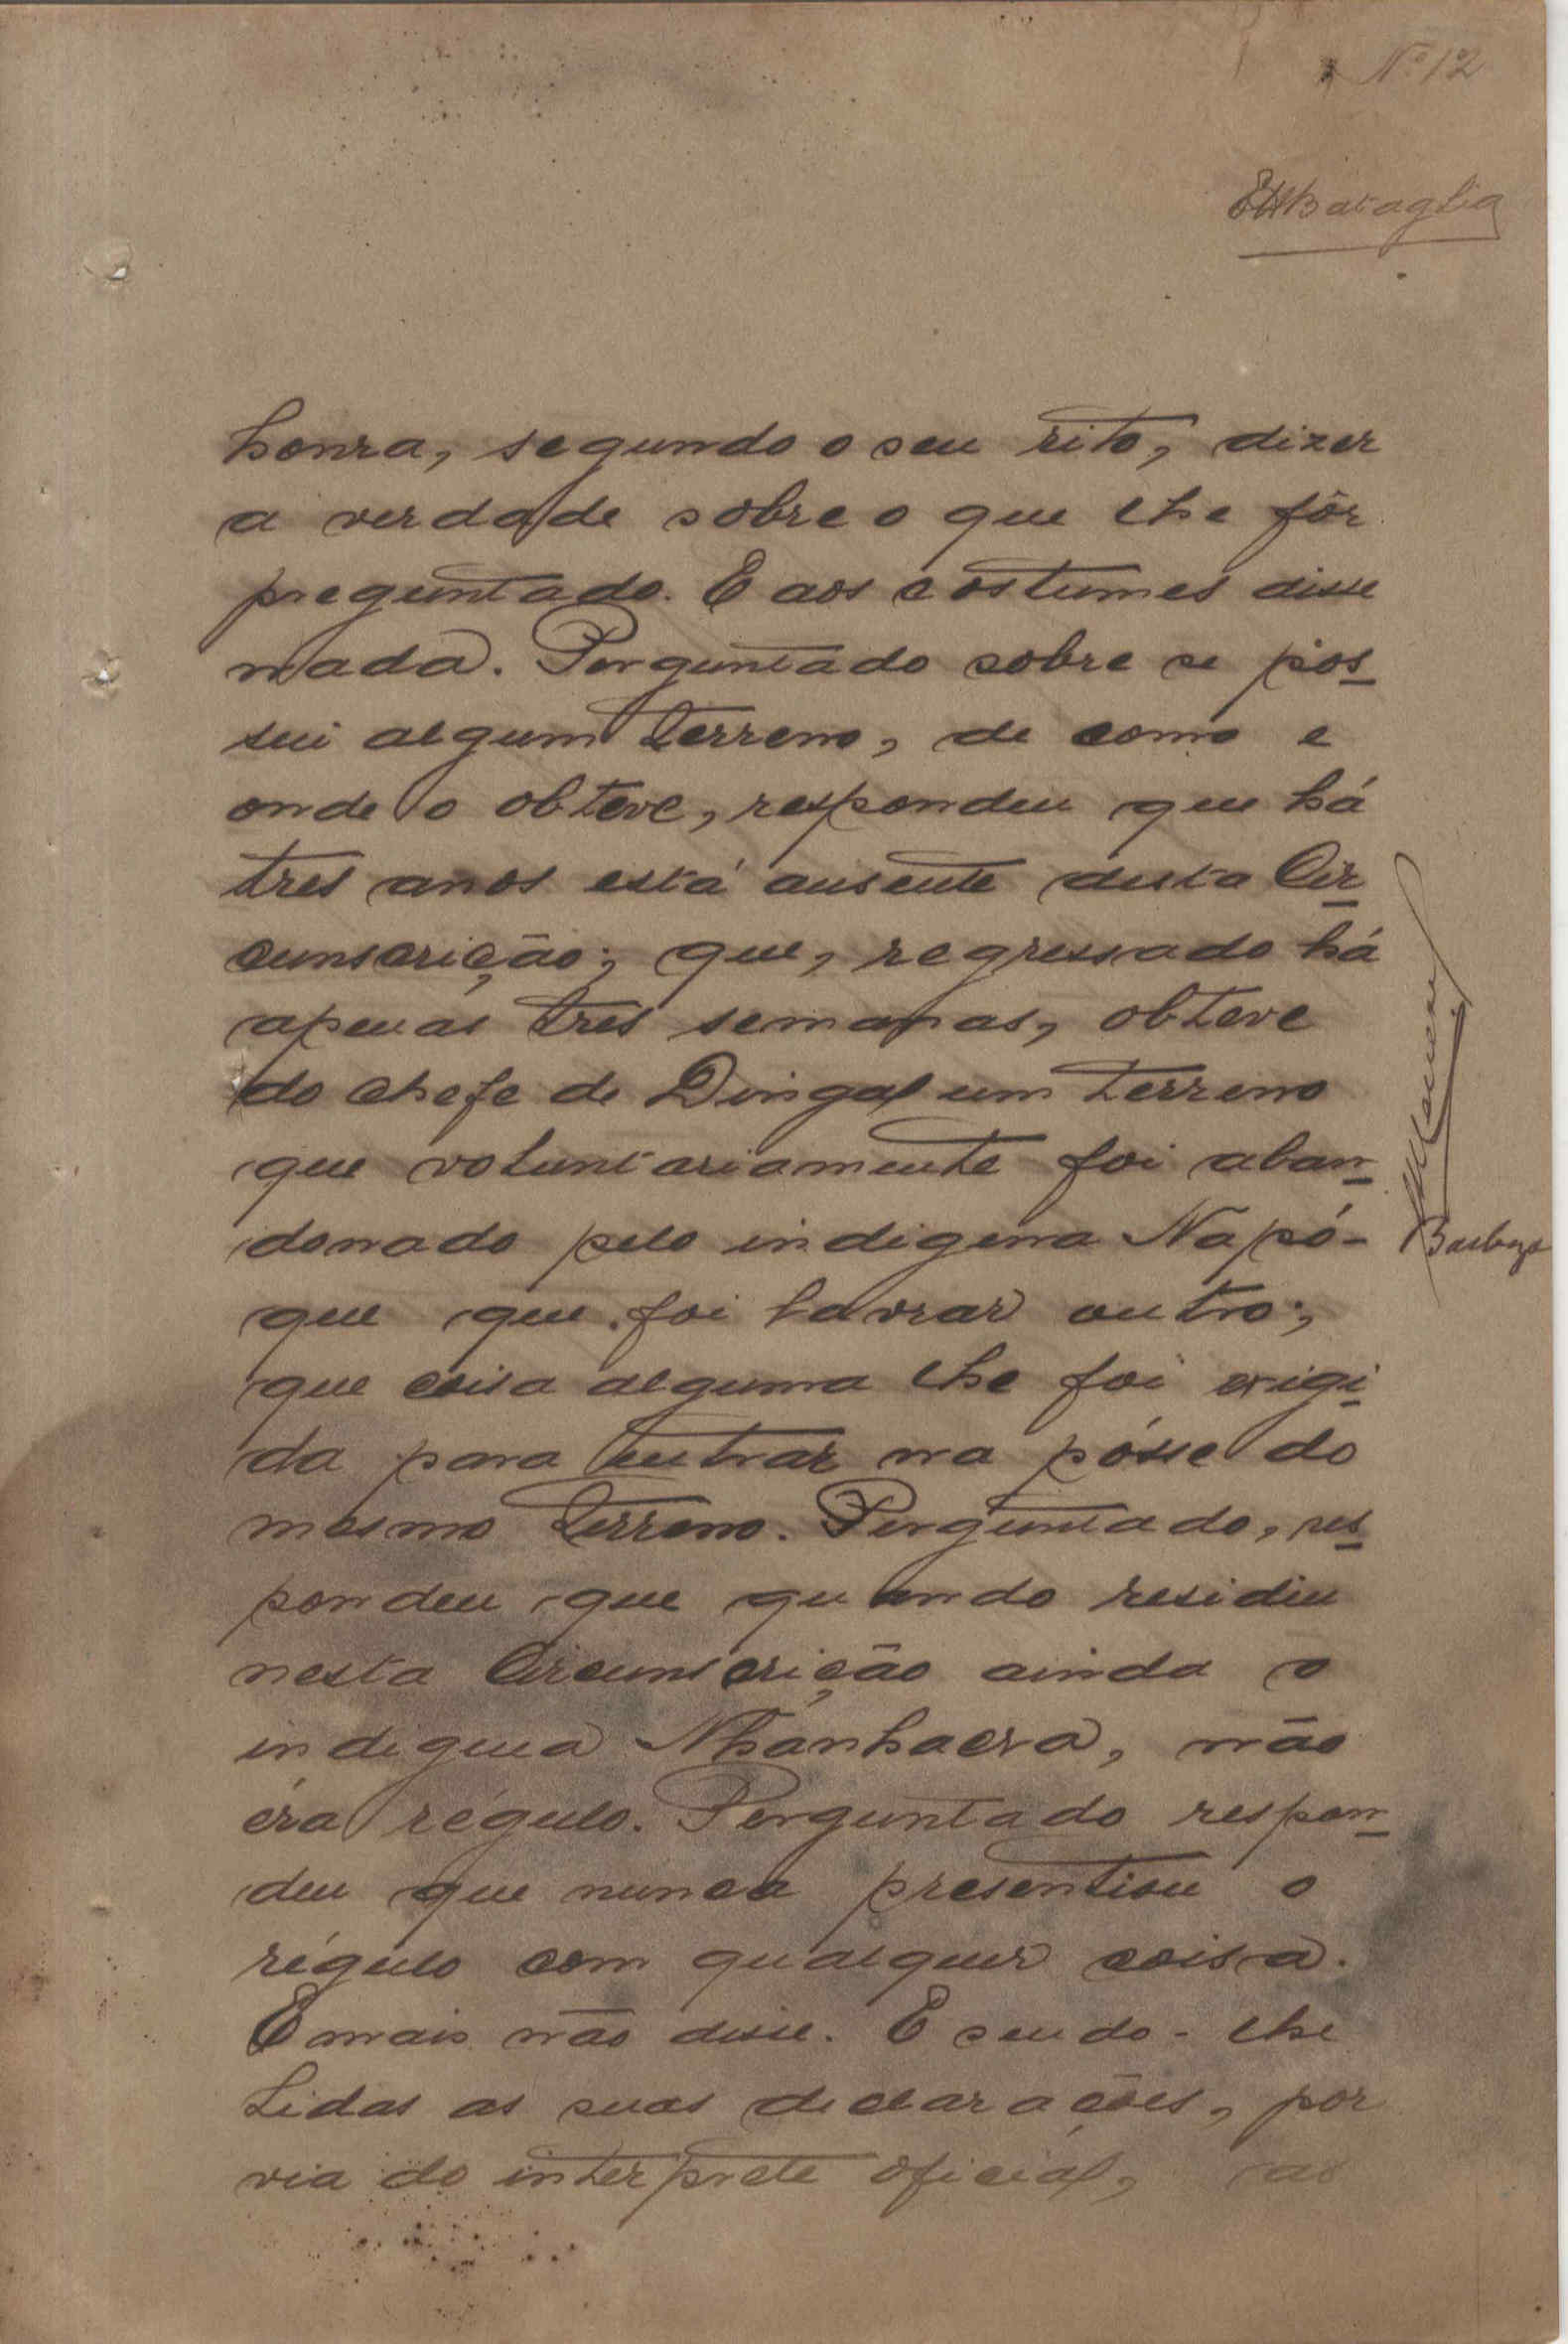 Nº 12
Bataglia
honra, segundo o seu rito, dizer
a verdade sobre o que lhe fôr
preguntado. E aos costumes disse
nada. Perguntado sobre se pos-
sui algum terreno, de como e
onde o obteve, respondeu que há
tres anos está ausente desta Cir-
cunscrição; que, regressado há
apenas tres semanas, obteve
do chefe de Dingal um terreno
que voluntariamente foi aban-
donado pelo indigena Napó-
que que foi lavrar outro;
que coisa alguma lhe foi exigi-
da para entrar na pósse do
mesmo terreno. Perguntado, res-
pondeu que quando residiu
nesta Circunscrição ainda o
indigena Nhánhaera, não
éra régulo. Perguntado respon-
deu que nunca presentiou o
régulo com qualquer coisa.
E mais não disse. E sendo-lhe
lidas as suas declarações, por
via do interprete oficial, as
Barboza